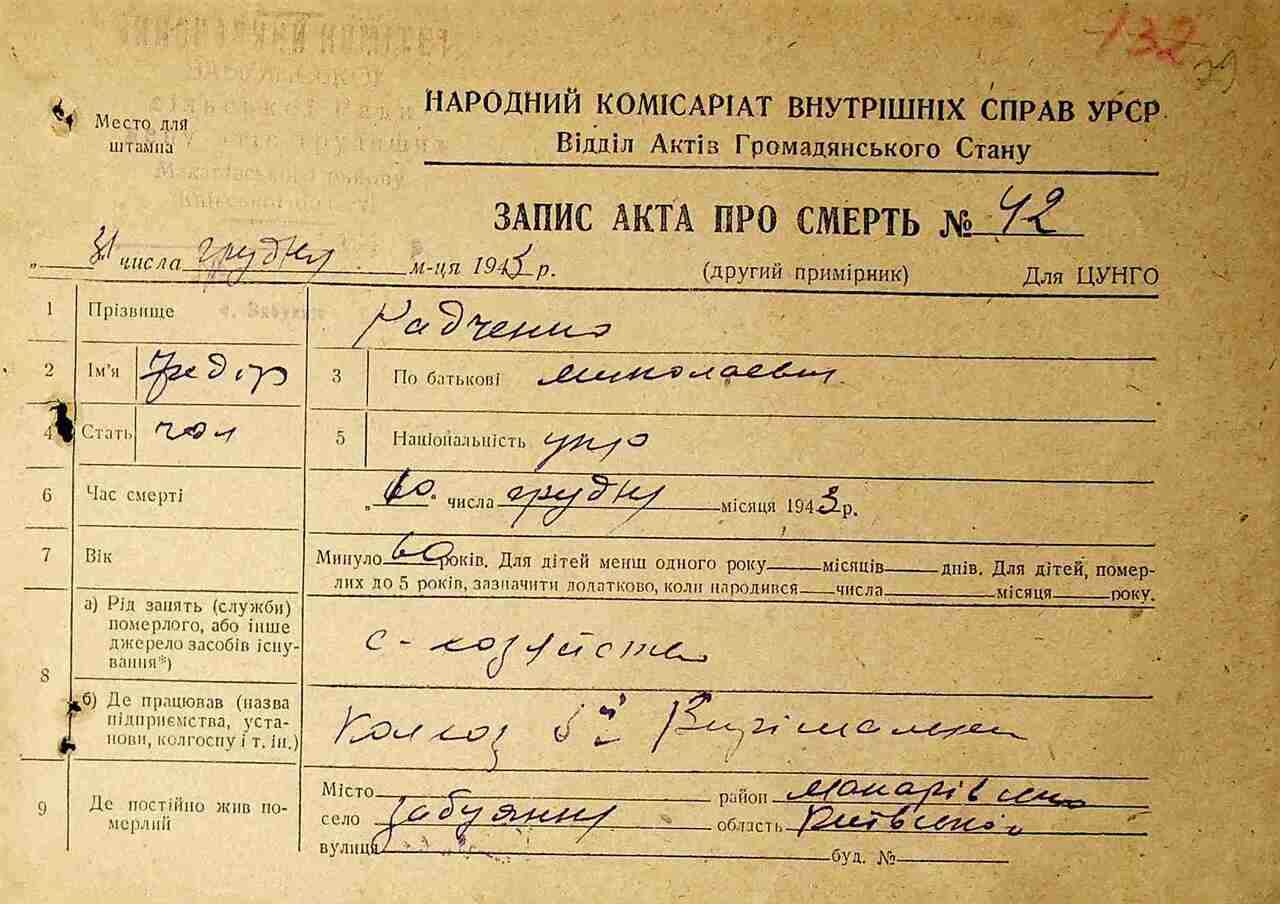 132
НАРОДНИЙ КОМІСАРІАТ ВНУТРІШНІХ СПРАВ УРСР
Місто для
штампа
Відділ Актів Громадянського Стану
ЗАПИС АКТА ПРО СМЕРТЬ № 42
„ 31 числа грудня м-ця 1943 р. (другий примірник) Для ЦУНГО
1 Прізвище Радченко
2 Ім'я Федір 3 По батькові Миколаевич
4 Стать чол 5 Національність укр
6 Час смерті числа грудня місяця 1943 р.
7 Вік Минуло 60 років. Для дітей менш одного року місяців днів. Для дітей, помер-
лих до 5 років, зазначити додатково, коли народився числа місяця року.
8 а) Рід занять (служби)
померлого, або інше
джерело засобів існу-
вання*)
с-хозяйство
б) Де працював (назва
підприємства, уста-
нови, колгоспу і т. ін.)
Колхоз
9 Де постійно жив по-
мерлий
Місто район Макарівский
село Забуяння область Київской
вулиця буд. №